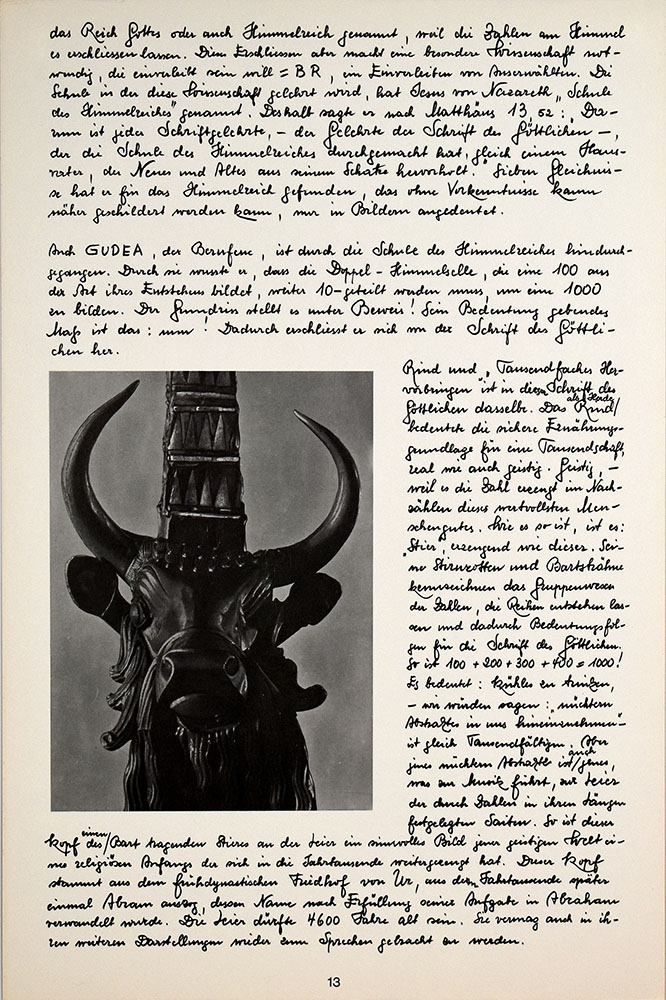 das Reich Gottes oder auch Himmelreich genannt, weil die Zahlen am Himmel
es erschliessen lassen. Dieses Erschliessen aber macht eine besondere Wissenschaft not-
wendig, die einverleibt sein will = BR, ein Einverleiben von Auserwählten. Die
Schule in der diese Wissenschaft gelehrt wird, hat Jesus von Nazareth „Schule
des Himmelreiches" genannt. Deshalb sagte er nach Matthäus 13, 52: „Da-
rum ist jeder Schriftgelehrte, – der Gelehrte der Schrift des Göttlichen –,
der die Schule des Himmelreiches durchgemacht hat, gleich einem Haus-
vater, der Neues und Altes aus seinem Schatze hervorholt." Sieben Gleichnis-
se hat er für das Himmelreich gefunden, das ohne Vorkenntnisse kaum
näher geschildert werden kann, nur in Bildern angedeutet.
Auch GUDEA, der Berufene, ist durch die Schule des Himmelreiches hindurch-
gegangen. Durch sie wusste er, dass die Doppel-Himmelselle, die eine 100 aus
der Art ihres Entstehens bildet, weiter 10-geteilt werden muss, um eine 1000
zu bilden. Der Grundriss stellt es unter Beweis! Sein Bedeutung gebendes
Maß ist das: mm! Dadurch erschliesst er sich von der Schrift des Göttli-
chen her.
Rind und „Tausendfaches Her-
vorbringen" ist in dieser Schrift des
Göttlichen dasselbe. Das Rind/
als Herde
bedeutete die sichere Ernährungs-
grundlage für eine Tausendschaft,
real wie auch geistig. Geistig, –
weil es die Zahl erzeugt im Nach-
zählen dieses wertvollsten Men-
schengutes. Wie es so ist, ist es:
„Stier", erzeugend wie dieser. Sei-
ne Stirnzotten und Bartsträhne
kennzeichnen das Gruppenwesen
der Zahlen, die Reihen entstehen las-
sen und dadurch Bedeutungsfol-
gen für die Schrift des Göttlichen.
So ist 100 + 200 + 300 + 400 = 1000!
Es bedeutet: Kühles zu trinken,
– wir würden sagen: „nüchtern
Abstraktes in uns hineinzunehmen" –
ist gleich Tausendfältigem. Aber
jenes nüchtern Abstrakte ist/jenes,
auch
was zur Musik führt, zur Leier
der durch Zahlen in ihren Längen
festgelegten Saiten. So ist dieser
Kopf des/Bart tragenden Stieres an der Leier ein sinnvolles Bild jener geistigen Welt ei-
einen
nes religiösen Anfangs der sich in die Jahrtausende weitergezeugt hat. Dieser Kopf
stammt aus dem frühdynastischen Friedhof von Ur, aus dem Jahrtausende später
einmal Abram auszog, dessen Name nach Erfüllung seiner Aufgabe in Abraham
verwandelt wurde. Die Leier dürfte 4600 Jahre alt sein. Sie vermag auch in ih-
ren weiteren Darstellungen wieder zum Sprechen gebracht zu werden.
13